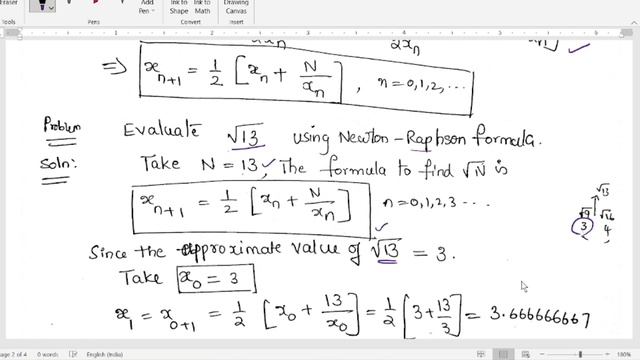 Eraser
Pens
Add Pen
Ink to Shape
Ink to Math
Drawing Canvas
Tools
Pens
Convert
Insert
2xn
⇒ x_{n+1} = 1/2 [x_n + N/x_n], n = 0,1,2, ...
Problem Evaluate √13 using Newton-Raphson formula.
Soln: Take N = 13, The formula to find √N is
x_{n+1} = 1/2 [x_n + N/x_n] n = 0,1,2,3 ...
√13
√9 √16
3 4
Since the approximate value of √13 = 3.
Take x_0 = 3
x_1 = x_{0+1} = 1/2 [x_0 + 13/x_0] = 1/2 [3 + 13/3] = 3.666666667
Page 2 of 4 0 words English (India) 100%